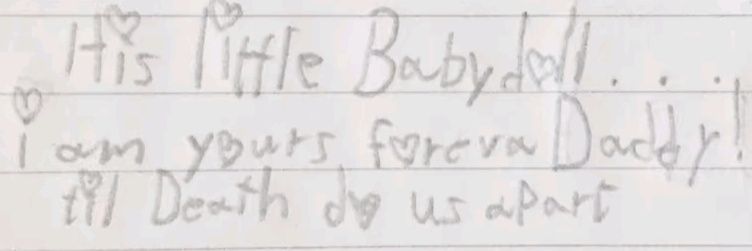 His little Babydoll. . . .
i am yours foreva Daddy!
til Death do us apart